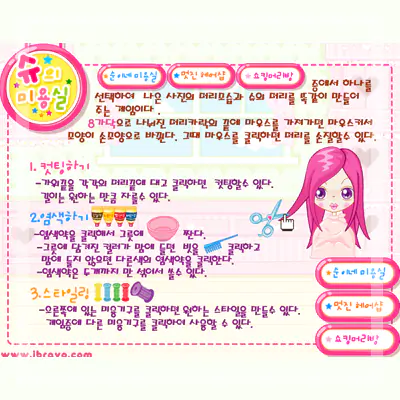 슈의
미용실
순이네 미용실
★멋진 헤어샵
★쇼킹머리방
중에서 하나를
선택하여 나온 사진의 머리모습과 슈의 머리를 똑같이 만들어
주는 게임이다.
8가닥으로 나뉘진 머리카락의 끝에 마우스를 가져가면 마우스커서
모양이 손모양으로 바뀐다. 그때 마우스를 클릭하면 머리를 손질할수 있다.
1. 컷팅하기
-가위끝을 각각의 머리끝에 대고 클릭하면 컷팅할수 있다.
길이는 원하는 만큼 자를수 있다.
2.염색하기
-염색약을 클릭해서 그릇에 짠다.
-그릇에 담겨진 컬러가 맘에 들면 빗을 클릭하고
맘에 들지 않으면 다른색의 염색약을 클릭한다.
-염색약은 두개까지 만 섞어서 쓸수 있다.
3.스타일링
-오른쪽에 있는 미용기구를 클릭하면 원하는 스타일을 만들수 있다.
게임중에 다른 미용기구를 클릭하여 사용할 수 있다.
순이네 미용실
★멋진 헤어샵
★쇼킹머리방
www.ibravo.com